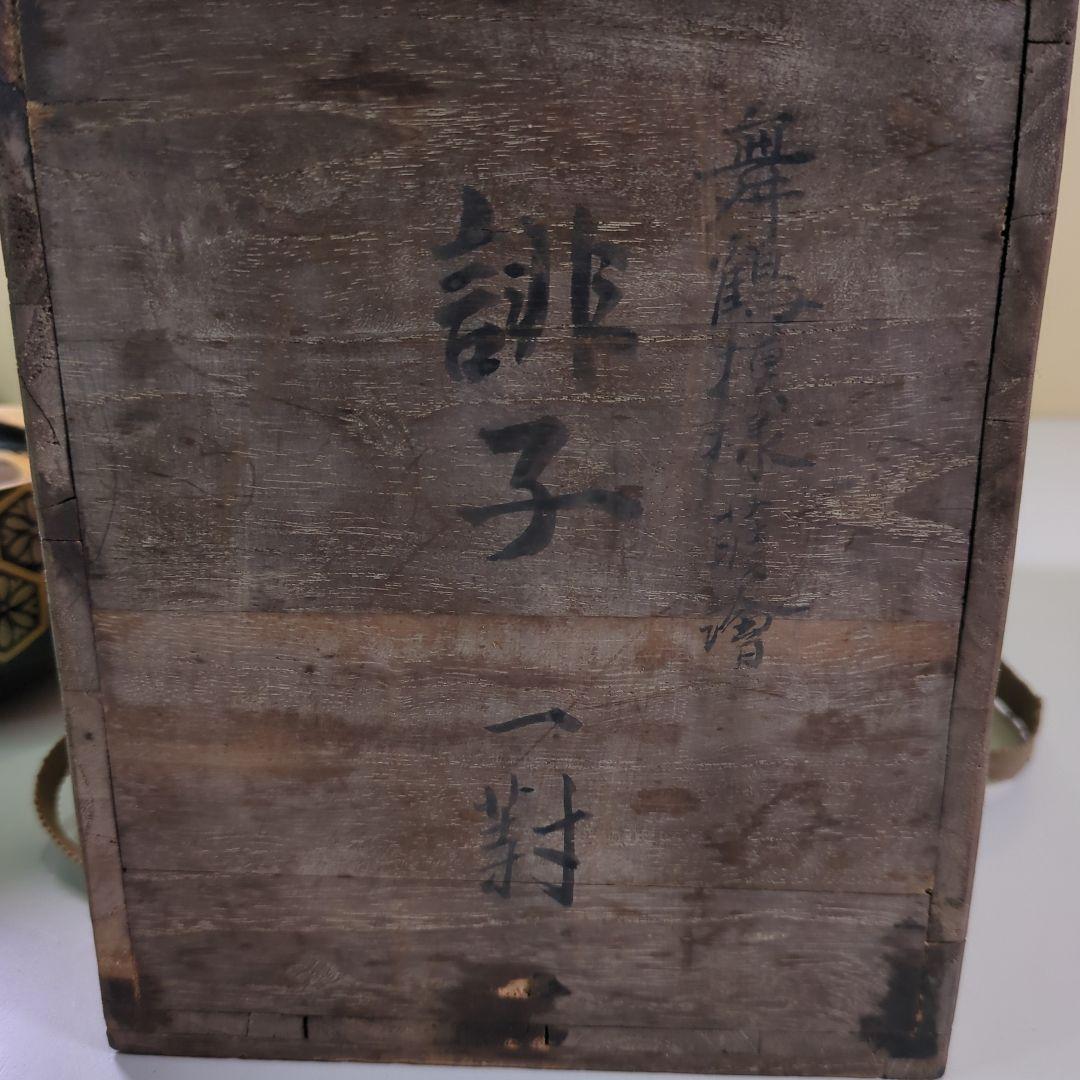 舞鶴模様蒔繪
誂子
一對